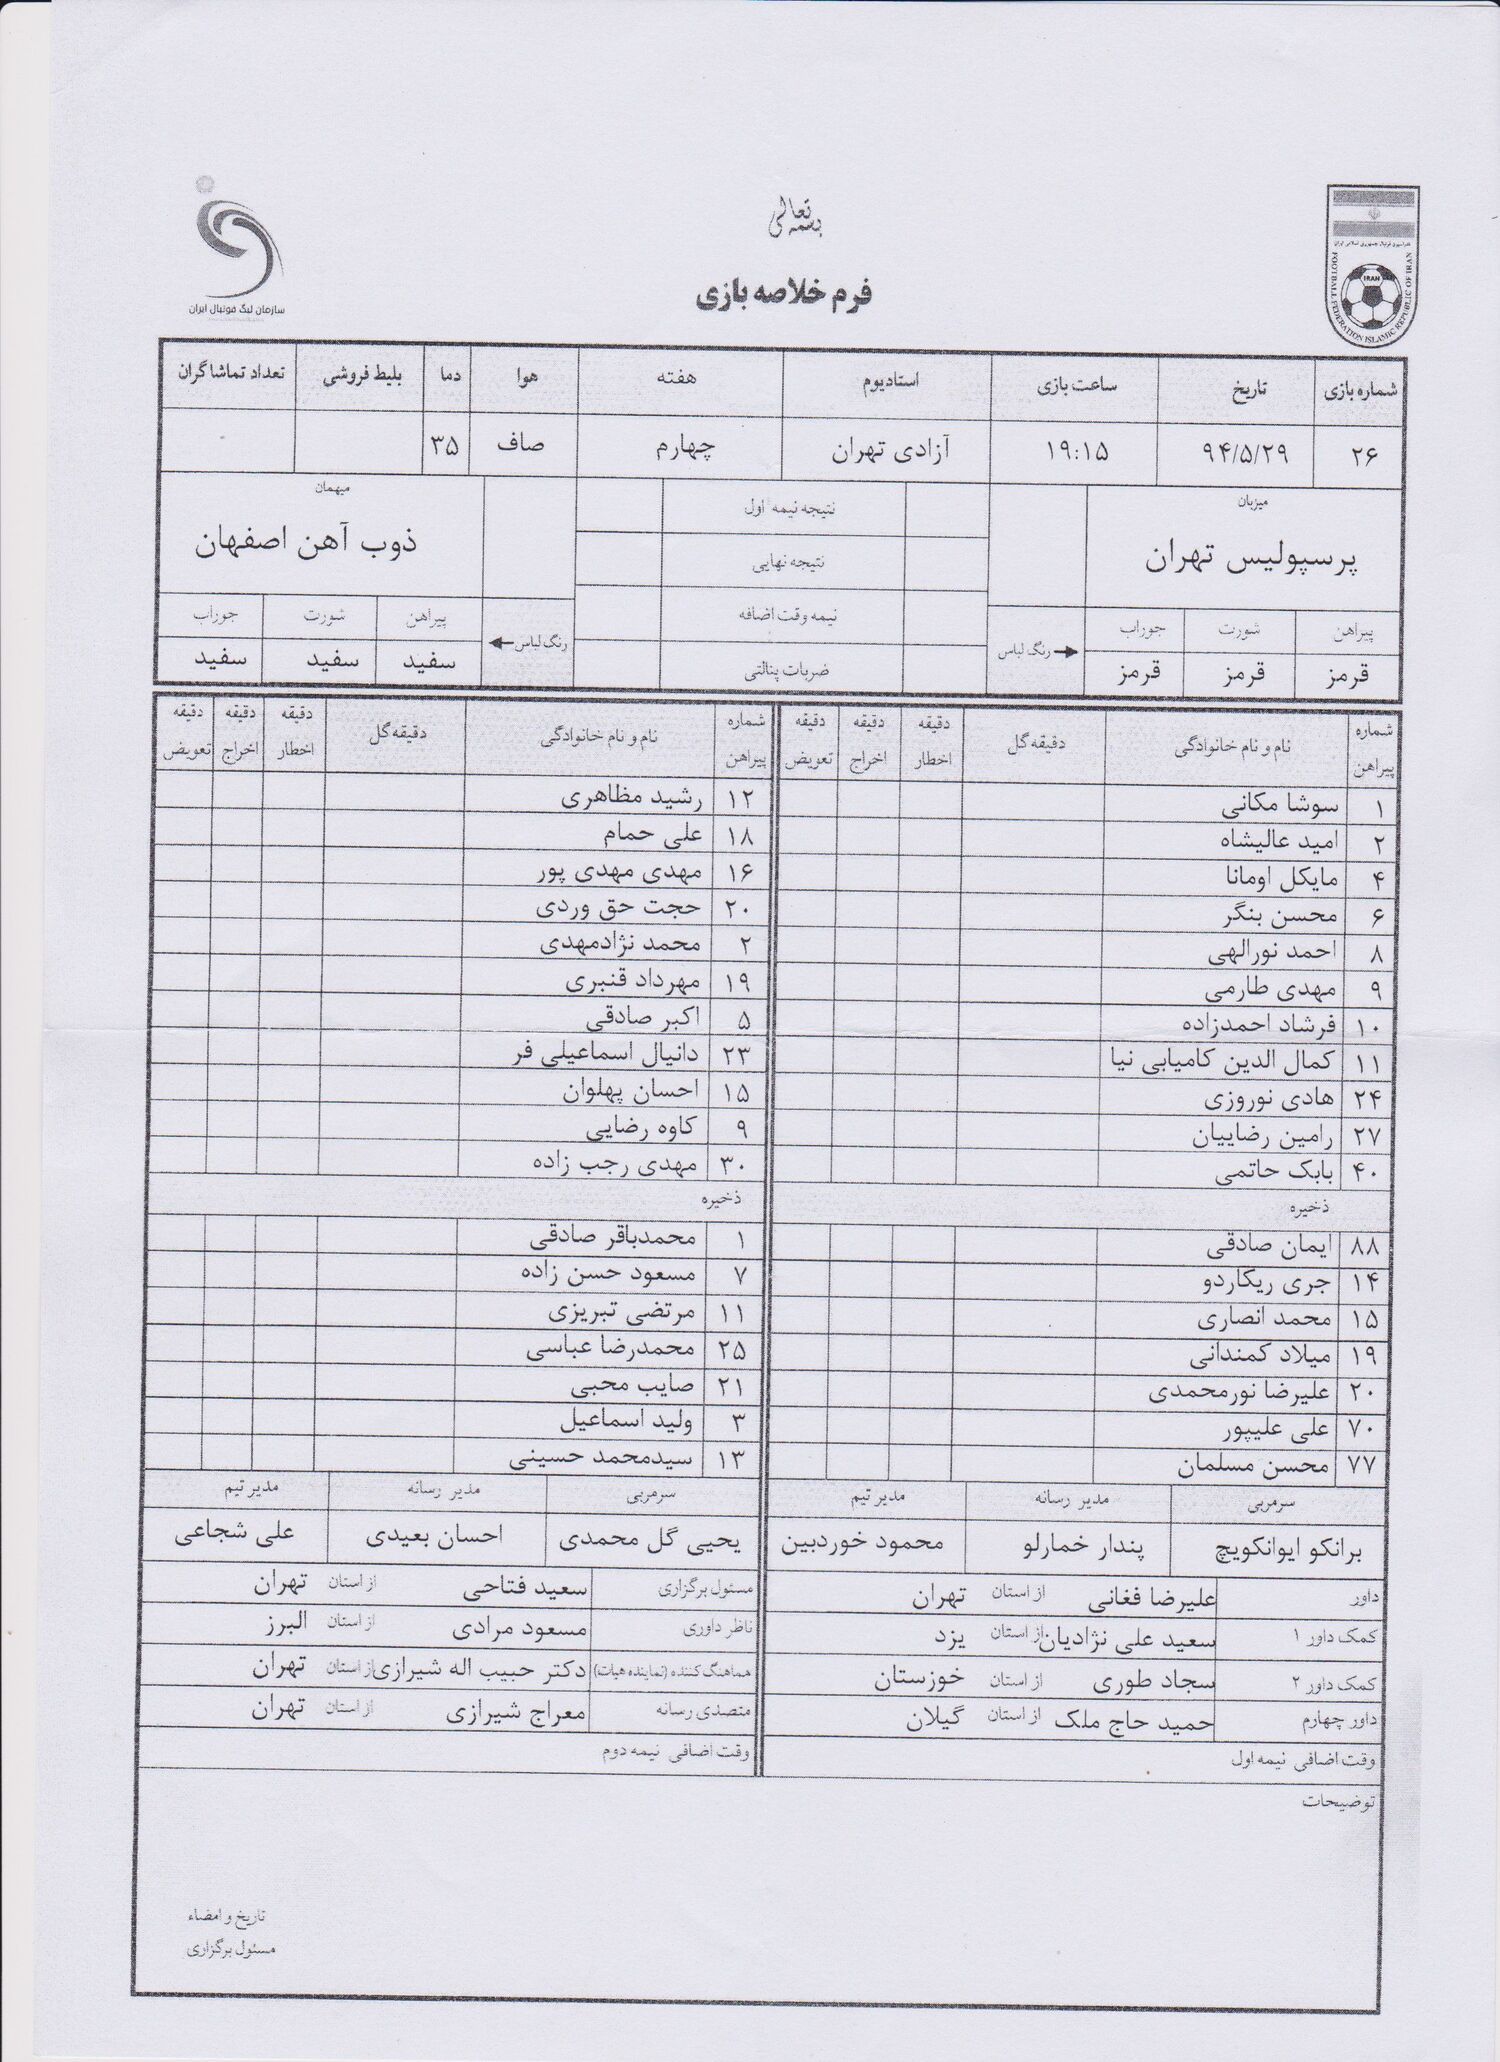 بسمه تعالی
فرم خلاصه بازی
سازمان لیگ فوتبال ایران
فدراسیون فوتبال جمهوری اسلامی ایران
IRAN
FOOTBALL FEDERATION ISLAMIC REPUBLIC OF IRAN
شماره بازی تاریخ ساعت بازی استادیوم هفته هوا دما بلیط فروشی تعداد تماشاگران
۲۶ ۹۴/۵/۲۹ ۱۹:۱۵ آزادی تهران چهارم صاف ۳۵
میزبان
پرسپولیس تهران
پیراهن شورت جوراب
قرمز قرمز قرمز
رنگ لباس
نتیجه نیمه اول
نتیجه نهایی
نیمه وقت اضافه
ضربات پنالتی
میهمان
ذوب آهن اصفهان
رنگ لباس
پیراهن شورت جوراب
سفید سفید سفید
شماره پیراهن نام و نام خانوادگی دقیقه گل دقیقه اخطار دقیقه اخراج دقیقه تعویض
۱ سوشا مکانی
۲ امید عالیشاه
۴ مایکل اومانا
۶ محسن بنگر
۸ احمد نورالهی
۹ مهدی طارمی
۱۰ فرشاد احمدزاده
۱۱ کمال الدین کامیابی نیا
۲۴ هادی نوروزی
۲۷ رامین رضاییان
۴۰ بابک حاتمی
ذخیره
۸۸ ایمان صادقی
۱۴ جری ریکاردو
۱۵ محمد انصاری
۱۹ میلاد کمندانی
۲۰ علیرضا نورمحمدی
۷۰ علی علیپور
۷۷ محسن مسلمان
سرمربی مدیر رسانه مدیر تیم
برانکو ایوانکویچ پندار خمارلو محمود خوردبین
شماره پیراهن نام و نام خانوادگی دقیقه گل دقیقه اخطار دقیقه اخراج دقیقه تعویض
۱۲ رشید مظاهری
۱۸ علی حمام
۱۶ مهدی مهدی پور
۲۰ حجت حق وردی
۲ محمد نژادمهدی
۱۹ مهرداد قنبری
۵ اکبر صادقی
۲۳ دانیال اسماعیلی فر
۱۵ احسان پهلوان
۹ کاوه رضایی
۳۰ مهدی رجب زاده
ذخیره
۱ محمدباقر صادقی
۷ مسعود حسن زاده
۱۱ مرتضی تبریزی
۲۵ محمدرضا عباسی
۲۱ صایب محبی
۳ ولید اسماعیل
۱۳ سیدمحمد حسینی
سرمربی مدیر رسانه مدیر تیم
یحیی گل محمدی احسان بعیدی علی شجاعی
داور علیرضا فغانی از استان تهران
کمک داور ۱ سعید علی نژادیان از استان یزد
کمک داور ۲ سجاد طوری از استان خوزستان
داور چهارم حمید حاج ملک از استان گیلان
وقت اضافی نیمه اول
مسئول برگزاری سعید فتاحی از استان تهران
ناظر داوری مسعود مرادی از استان البرز
هماهنگ کننده (نماینده هیات) دکتر حبیب اله شیرازی از استان تهران
متصدی رسانه معراج شیرازی از استان تهران
وقت اضافی نیمه دوم
توضیحات
تاریخ و امضاء
مسئول برگزاری